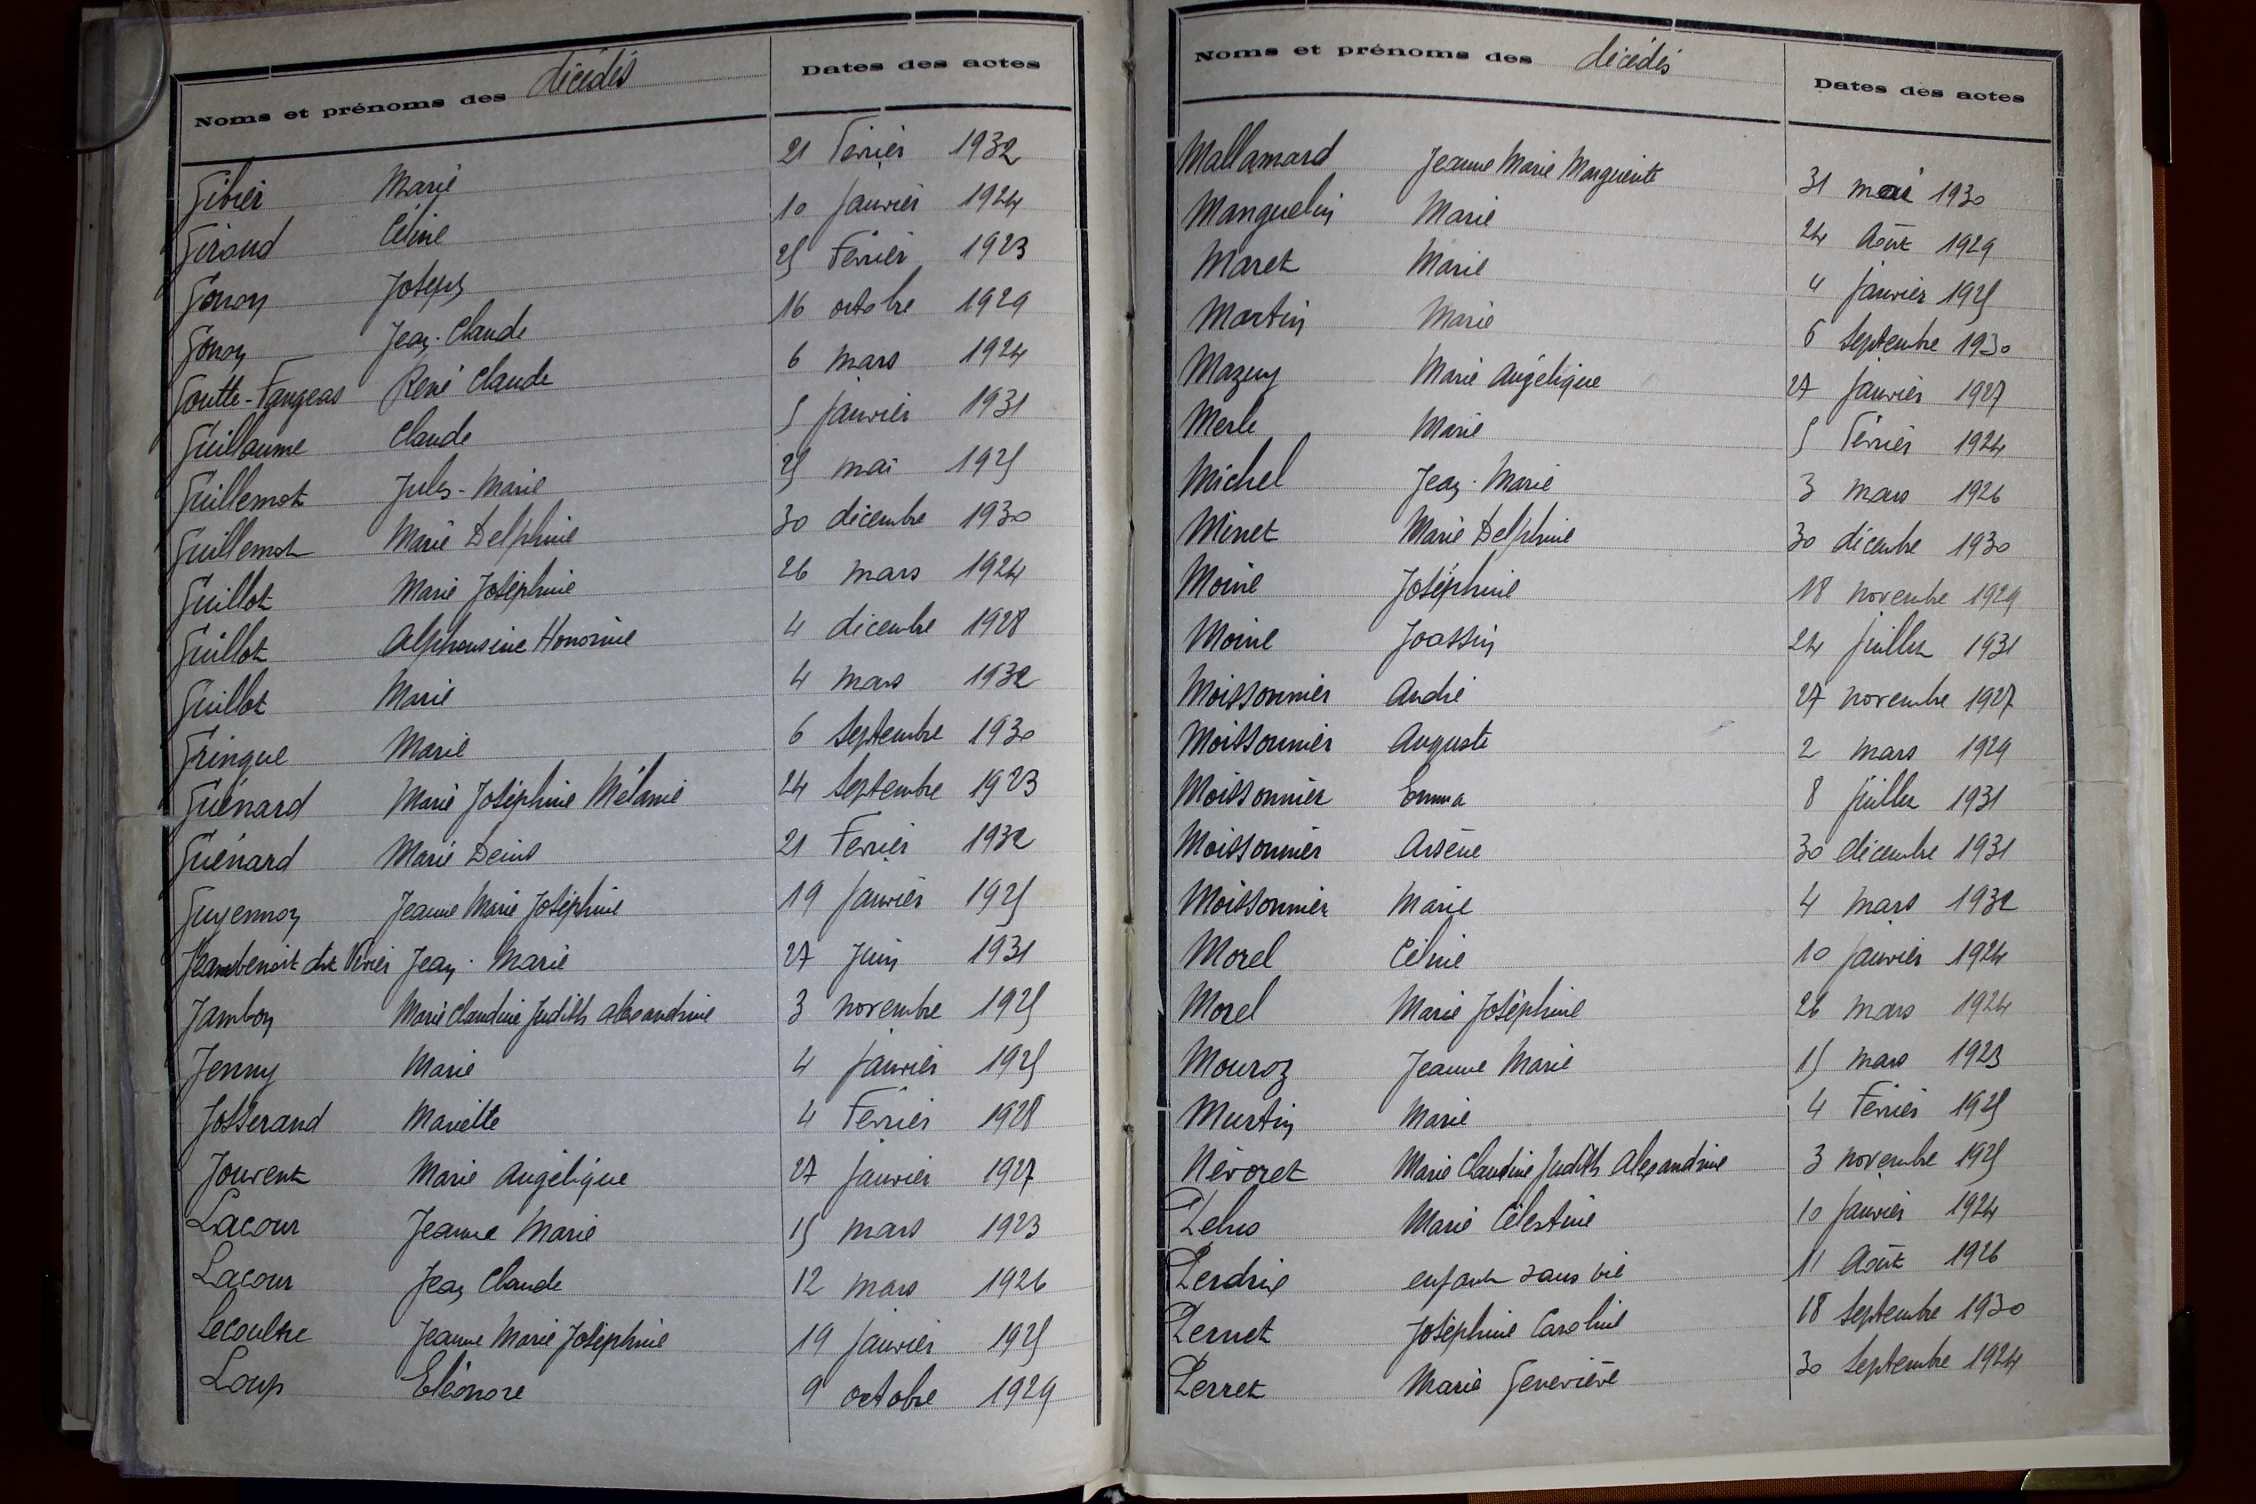 Noms et prénoms des décédés Dates des actes
Gibier Marie 21 Février 1932
Giraud Céline 10 janvier 1924
Gonon Joseph 25 Février 1923
Gonon Jean-Claude 16 octobre 1929
Goutte-Fangeas René Claude 6 mars 1924
Guillaume Claude 5 janvier 1931
Guillemot Jules-Marie 25 mai 1925
Guillemot Marie Delphine 30 décembre 1930
Guillot Marie Joséphine 26 mars 1924
Guillot Alphonsine Honorine 4 décembre 1928
Guillot Marie 4 mars 1932
Gringue Marie 6 septembre 1930
Guénard Marie Joséphine Mélanie 24 septembre 1923
Guénard Marie Denis 21 Février 1932
Guyennon Jeanne Marie Joséphine 19 janvier 1925
Jeambenoit dit Vivier Jean-Marie 27 Juin 1931
Jambon Marie Claudine Judith Alexandrine 3 novembre 1925
Jenny Marie 4 janvier 1925
Josserand Mariette 4 Février 1928
Jouvent Marie Angélique 27 janvier 1927
Lacour Jeanne Marie 15 mars 1923
Lacour Jean Claude 12 mars 1926
Lecoultre Jeanne Marie Joséphine 19 janvier 1925
Loup Eléonore 9 octobre 1929
Noms et prénoms des décédés Dates des actes
Mallamard Jeanne Marie Marguerite 31 mai 1930
Manguelin Marie 24 Août 1929
Maret Marie 4 janvier 1925
Martin Marie 6 septembre 1930
Mazuy Marie Angélique 27 janvier 1927
Merle Marie 5 Février 1924
Michel Jean-Marie 3 mars 1926
Minet Marie Delphine 30 décembre 1930
Moine Joséphine 18 novembre 1929
Moine Joassin 24 juillet 1931
Moissonnier André 27 novembre 1927
Moissonnier Auguste 2 mars 1929
Moissonnier Emma 8 juillet 1931
Moissonnier Arsène 30 décembre 1931
Moissonnier Marie 4 mars 1932
Morel Céline 10 janvier 1924
Morel Marie Joséphine 26 mars 1924
Mouroz Jeanne Marie 15 mars 1923
Murtin Marie 4 Février 1925
Névoret Marie Claudine Judith Alexandrine 3 novembre 1925
Pelus Marie Célestine 10 janvier 1924
Perdrix enfant sans vie 11 Août 1926
Pernet Joséphine Caroline 18 septembre 1930
Perret Marie Geneviève 30 septembre 1924